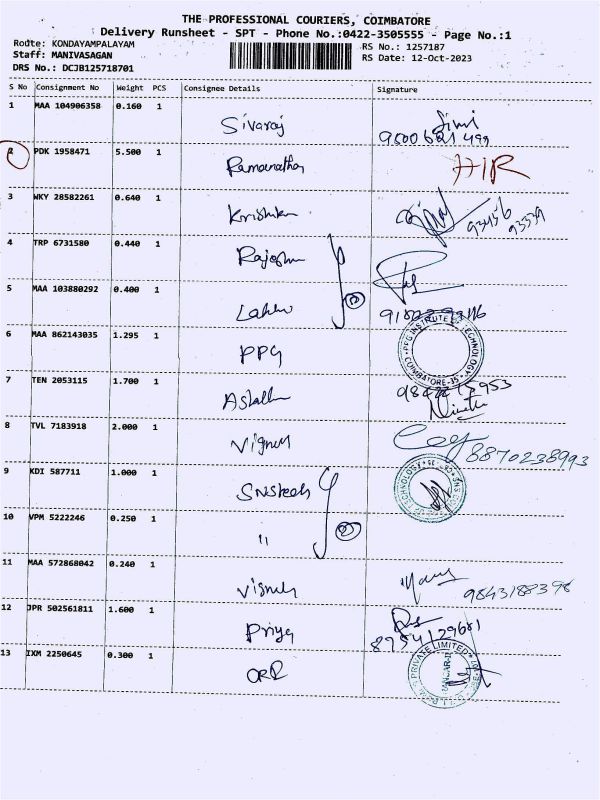 THE PROFESSIONAL COURIERS, COIMBATORE
Delivery Runsheet - SPT - Phone No.:0422-3505555 - Page No.:1
Rodte: KONDAYAMPALAYAM
Staff: MANIVASAGAN
DRS No.: DCJB125718701
RS No.: 1257187
RS Date: 12-Oct-2023
S No Consignment No Weight PCS Consignee Details Signature
1 MAA 104906358 0.160 1 Sivaraj
2 PDK 1958471 5.500 1 Ramanathan
3 WKY 28582261 0.640 1 Krishna
4 TRP 6731580 0.440 1
5 MAA 103880292 0.400 1
6 MAA 862143035 1.295 1 PPG
PPG INSTITUTE TECHNOLOGY COIMBATORE-35
7 TEN 2053115 1.700 1
8 TVL 7183918 2.000 1 Vignesh 8870238993
9 KDI 587711 1.000 1 SNS tech
TECHNOLOGY SNS
10 VPM 5222246 0.250 1 "
11 MAA 572868042 0.240 1 Vignesh 9843188398
12 JPR 502561811 1.600 1 Priya 8954129681
13 IXM 2250645 0.300 1
PRIVATE LIMITED